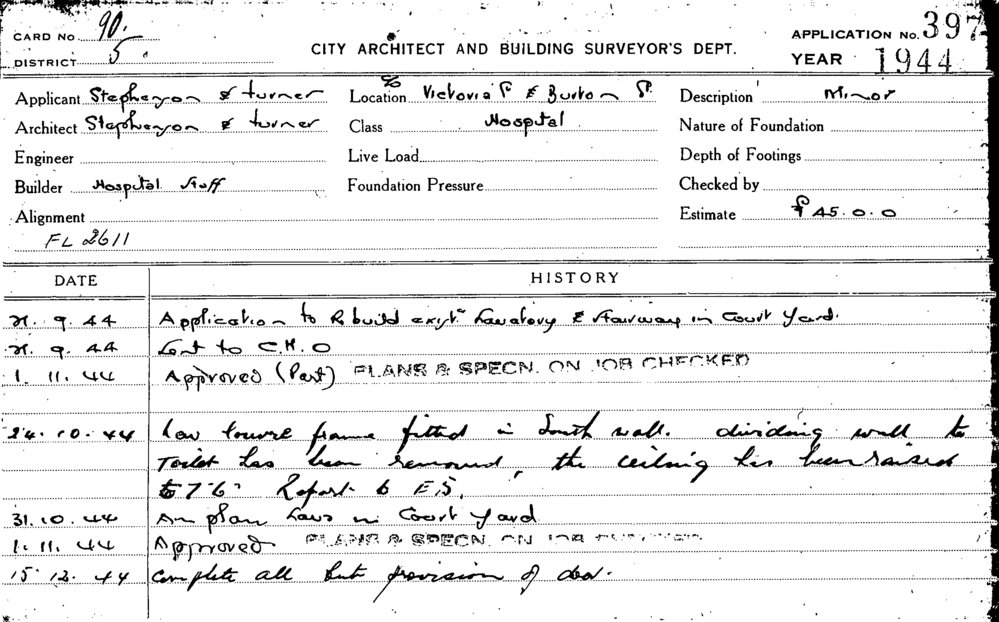 CARD No. 90.
DISTRICT 5.
CITY ARCHITECT AND BUILDING SURVEYOR'S DEPT.
APPLICATION No. 397
YEAR 1944
Applicant Stephenson & turner
Location Victoria St & Burton St.
Description Minor
Architect Stephenson & turner
Class Hospital
Nature of Foundation
Engineer
Live Load
Depth of Footings
Builder Hospital Staff
Foundation Pressure
Checked by
Alignment
Estimate £45.0.0
FL 2611
DATE HISTORY
21. 9. 44 Application to Rebuild exist Lavatory & Stairway in Court Yard.
21. 9. 44 Sent to C.H.O
1. 11. 44 Approved (Part) PLANS & SPECN. ON JOB CHECKED
24. 10. 44 louvre frame fitted in South wall. dividing wall to
Toilet has been removed, the ceiling has been raised
to 7'6" Report to E.S.
31. 10. 44 plan in Court Yard
1. 11. 44 Approved PLANS & SPECN. ON JOB
15. 12. 44 Complete all but provision of door.